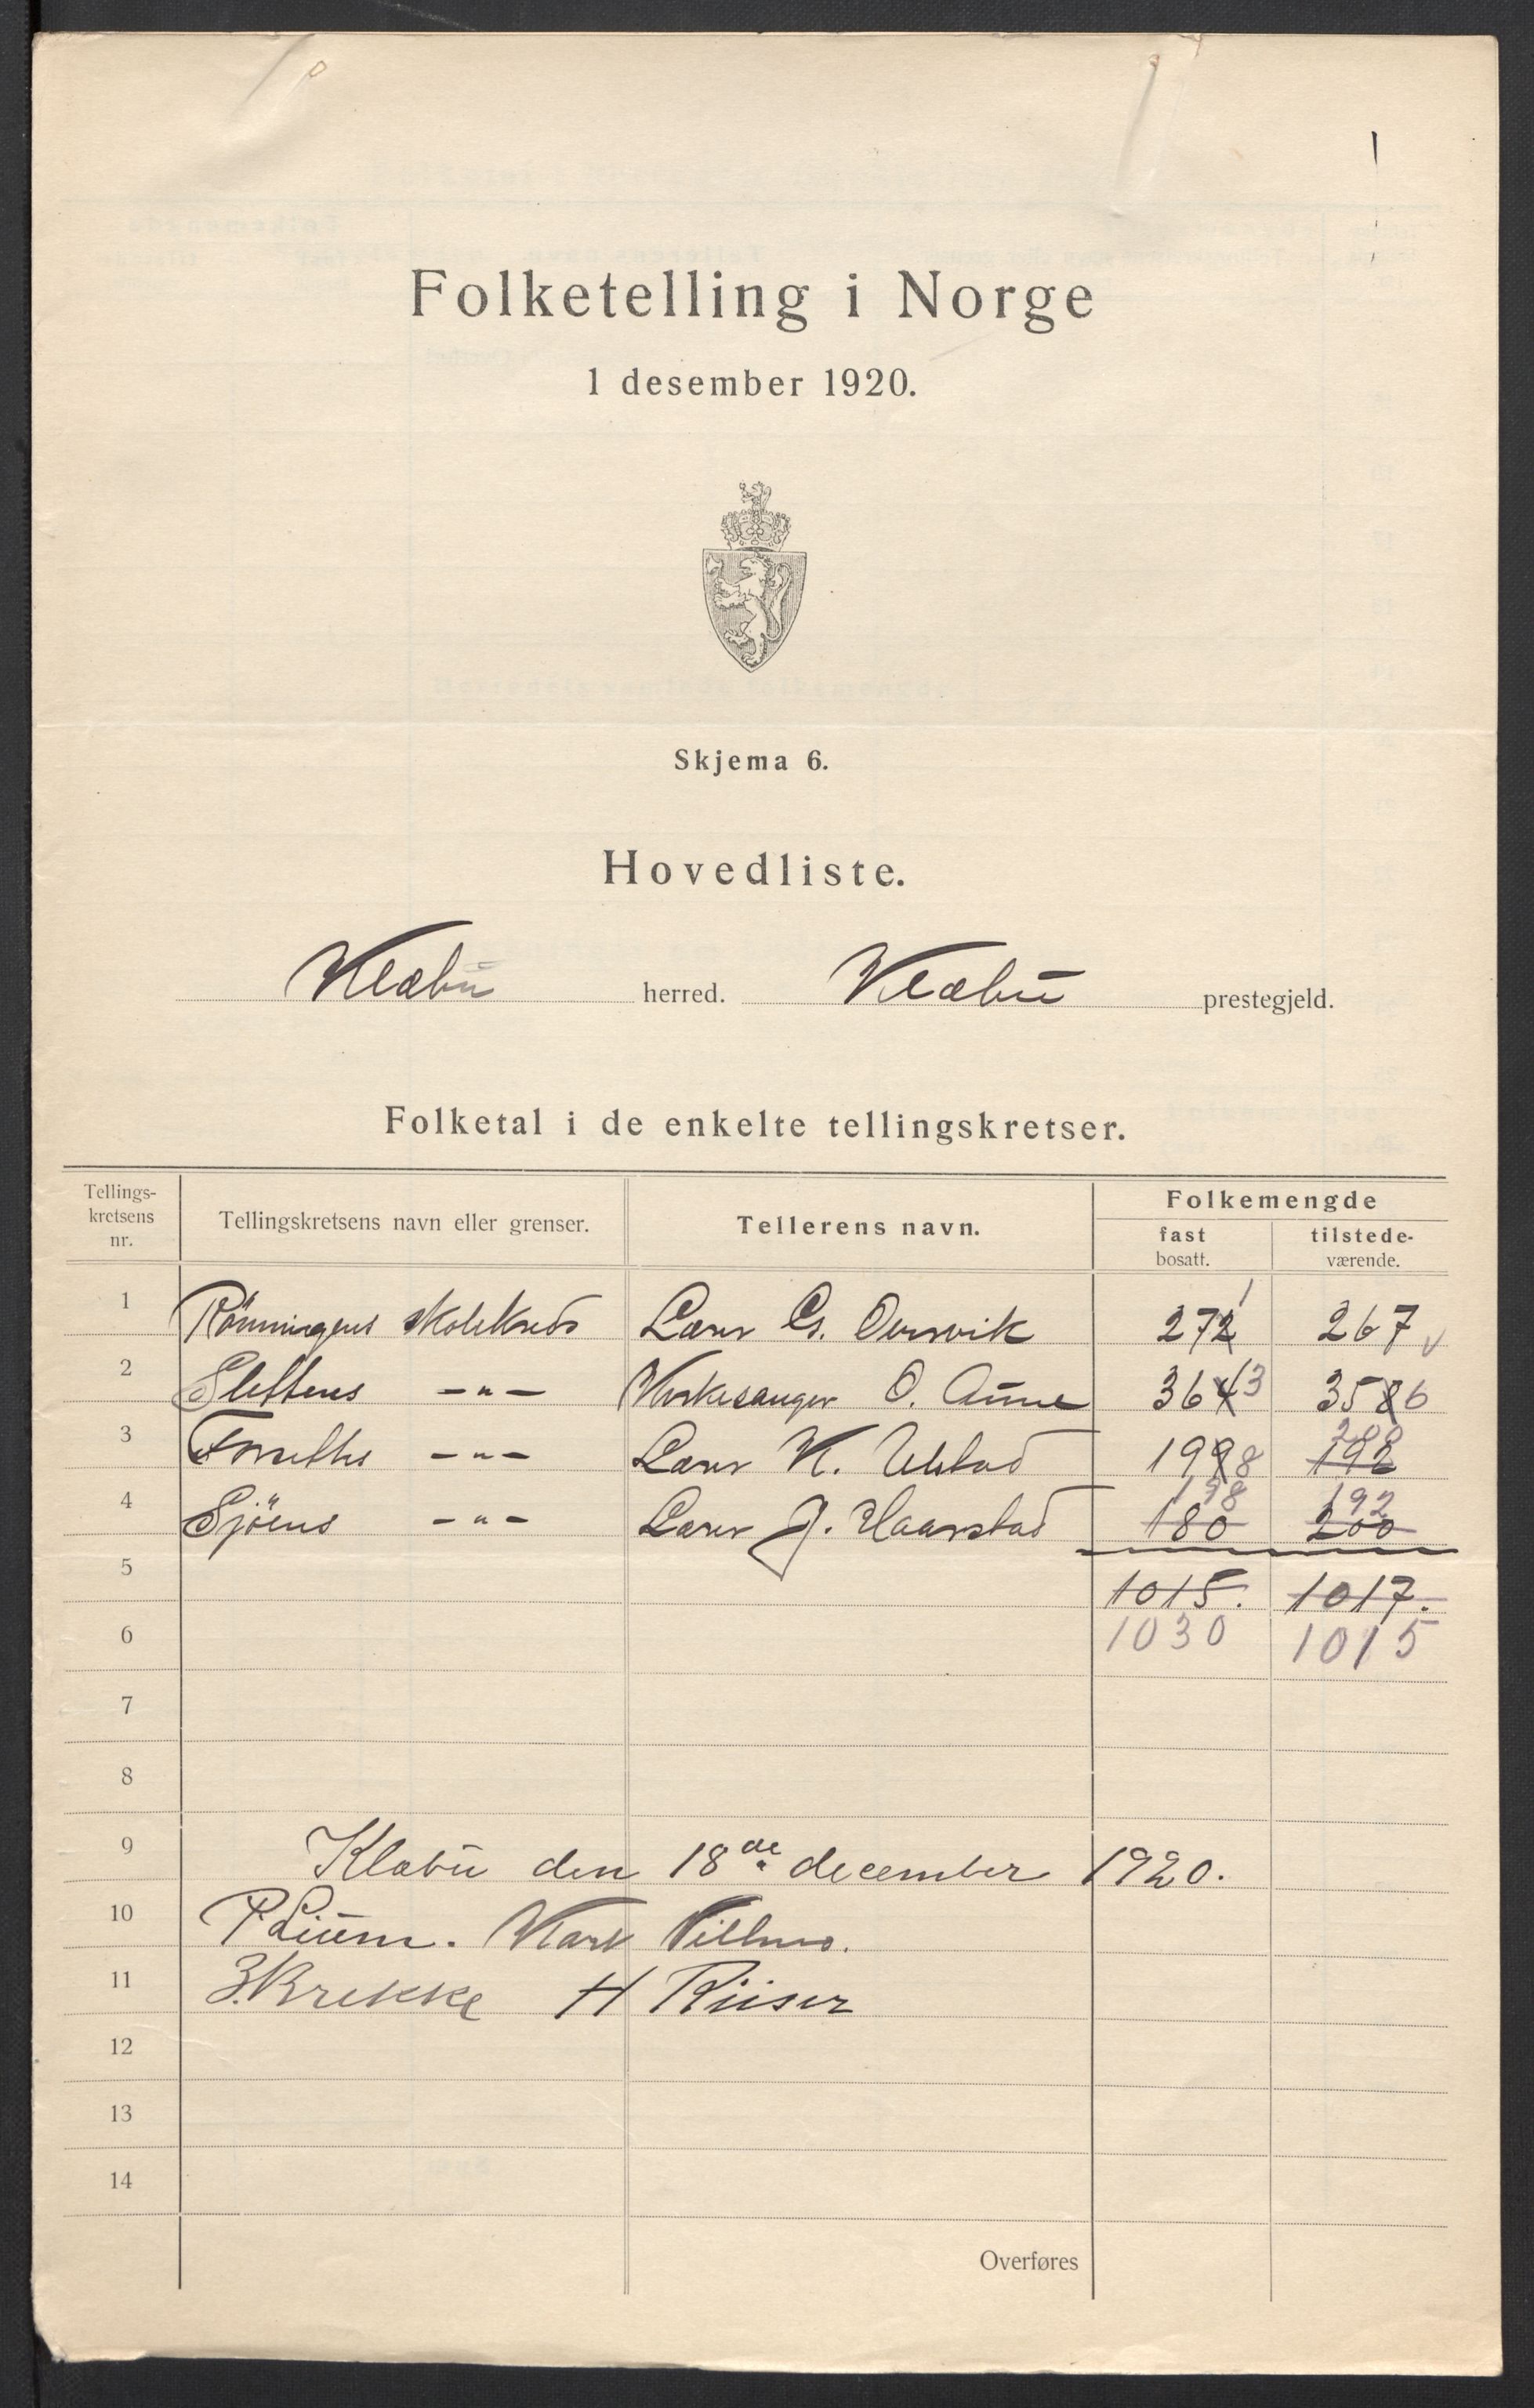 Folketelling i Norge
1 desember 1920.
Skjema 6.
Hovedliste.
Klæbu herred. Klæbu prestegjeld.
Folketal i de enkelte tellingskretser.
Tellings-kretsens nr. Tellingskretsens navn eller grenser. Tellerens navn. Folkemengde
fast bosatt. tilstede-værende.
1 Rönningens skolekreds Lærer Cs. 272 1 267 v
2 Slettens -"- Kirkesanger O. Aune 364 3 358 6
3 Forseths -"- Lærer K. Ulstad 199 8 198 200
4 Sjöens -"- Lærer J. Haarstad 180 198 200 192
5 1015. 1017.
6 1030 1015
7
8
9 Klæbu den 18de december 1920.
10 P Lium. Karl Villmo.
11 Brekke H Riiser
12
13
14
Overføres